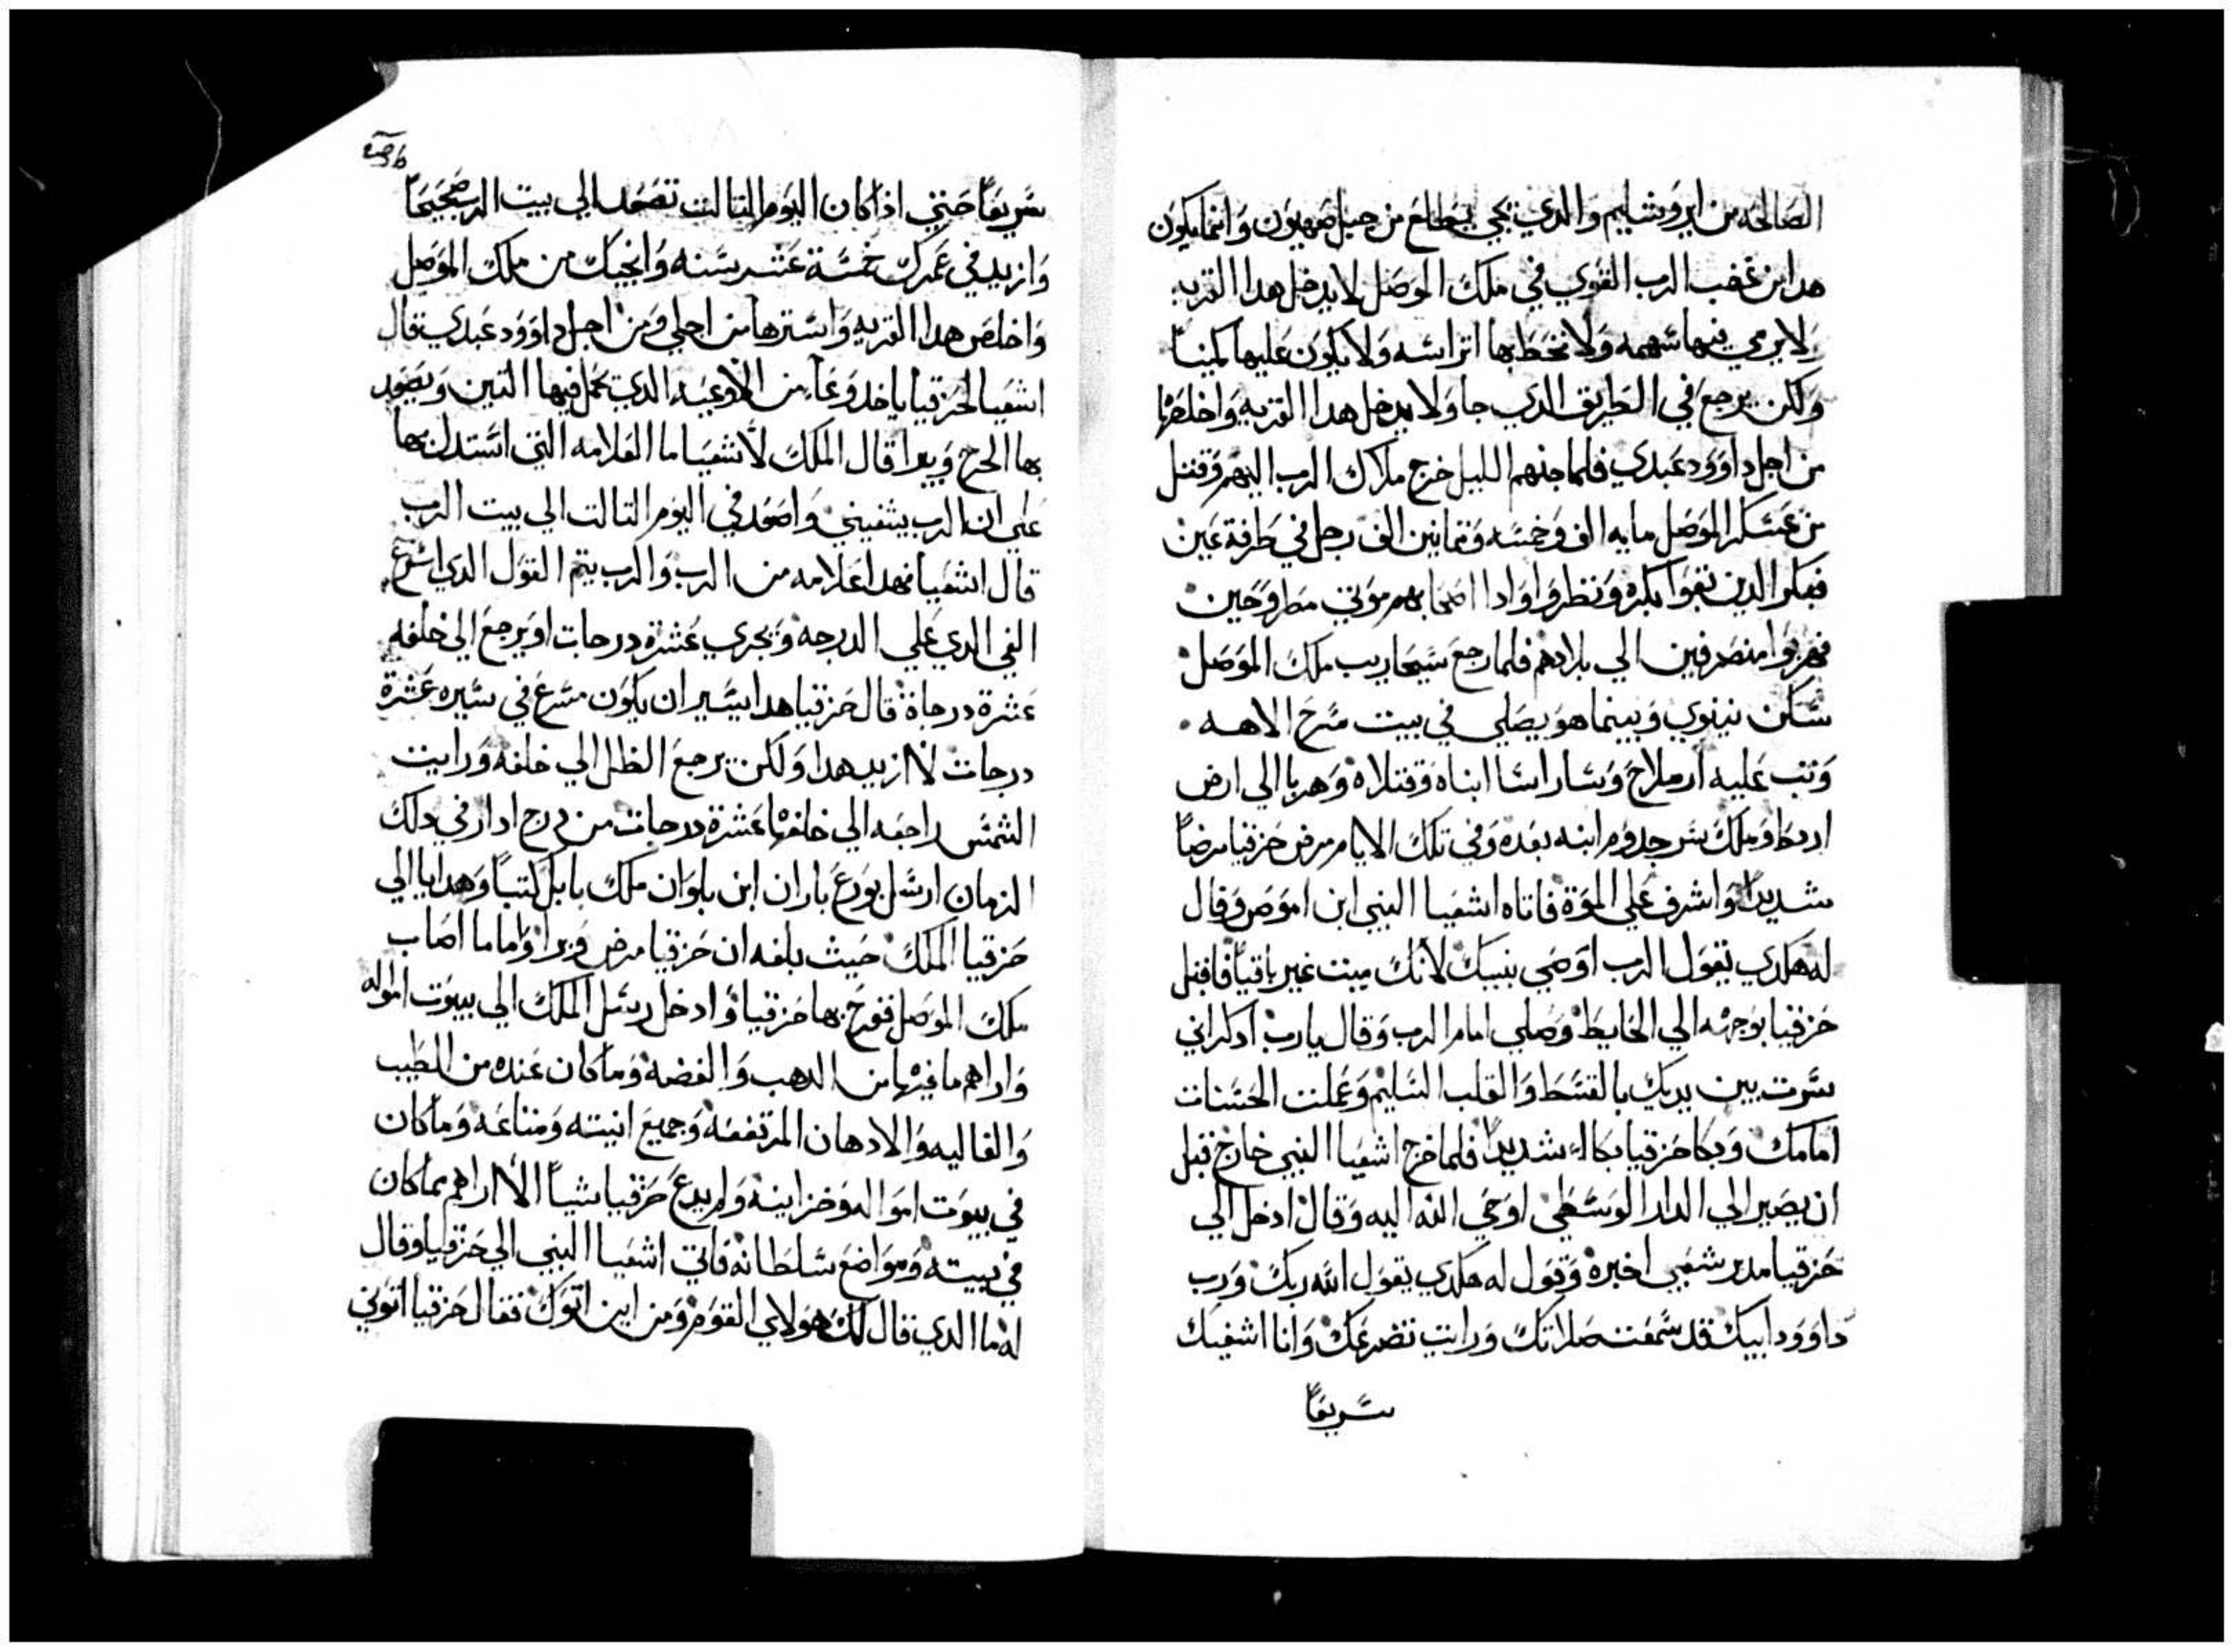 الصالحه من ايروشليم والدي يجي يطالع من جبل صهيون وانما يكون
هدا من غضب الرب القوي في ملك الموصل لا يدخل هدا القريه
ولا يرمي فيها سهمه ولا تخط بها اتراسه ولا يكون عليها كمينا
ولكن يرجع في الطريق الدي جا ولا يدخل هدا القريه واخلصها
من اجل داوود عبدي فلما جنهم الليل خرج ملاك الرب اليهم وقتل
من عسكر الموصل مايه الف وخمسه وتمانين الف رجل في طرفة عين
فبكر الدين بقوا بكره ونظروا وادا اصحابهم موتي مطروحين
فهربوا منصرفين الي بلادهم فلما رجع سيحاريب ملك الموصل
سكن نينوي وبينما هو يصلي في بيت مسرح الاهه
وتب عليه ارملاح وساراسا ابناه وقتلاه وهربا الي ارض
اردكا وملك سرجدوم ابنه بعده وفي تلك الايام مرض حزقيا مرضاً
شديداً واشرف علي الموة فاتاه اشعيا النبي ابن اموص وقال
له هكدي يقول الرب اوصي بنيك لانك ميت غير باقياً فاقبل
حزقيا بوجهه الي الحايط وصلي امام الرب وقال يارب ادكراني
سرت بين يديك بالقسط والقلب السليم وعملت الحسنات
امامك وبكا حزقيا بكاءً شديداً فلما خرج اشعيا النبي خارج قبل
ان يصير الي الدار الوسطي اوحي الله اليه وقال ادخل الي
حزقيا مدبر شعبي اخبره وقول له هكدي يقول الله ربك ورب
داوود ابيك قد سمعت صلاتك ورايت تضرعك وانا اشفيك
سريعاً
سريعاً حتي اذا كان اليوم التالت تصعد الي بيت الرب صحيحاً
وازيد في عمرك خمسة عشر سنه وانجيك من ملك الموصل
واخلص هدا القريه واسترها من اجلي ومن اجل داوود عبدي قال
اشعيا لحزقيا ياخد وعاء من الاوعيه الدي يحمل فيها التين ويصعد
بها الجرح ويبرا قال الملك لاشعيا ما العلامه التي استدل بها
علي ان الرب يشفيني واصعد في اليوم التالت الي بيت الرب
قال اشعيا فهدا علامه من الرب والرب يتم القول الدي اسرع
الفي الدي علي الدرجه ويجري عشرة درجات او يرجع الي خلفه
عشرة درجاة قال حزقيا هدا يسير ان يكون مسرع في سيره عشرة
درجات لا ازيد هدا ولكن يرجع الظل الي خلفه ورايت
الشمس راجعه الي خلفها عشرة درجات من درج ادار في دلك
الزمان ارسل بورع باران ابن بلوان ملك بابل كتباً وهدايا الي
حزقيا الملك حيث بلغه ان حزقيا مرض وبرا واما ما اصاب
ملك الموصل ففرح بها حزقيا وادخل رسل الملك الي بيوت امواله
واراهم ما فيها من الدهب والفضه وما كان عنده من الطيب
والغاليه والادهان المرتفعه وجميع انيته ومتاعه وما كان
في بيوت امواله وخزاينه ولم يدع حزقيا شياً الا اراهم بما كان
في بيته ومواضع سلطانه فاتي اشعيا النبي الي حزقيا وقال
له ما الدي قال لك هولاي القوم ومن اين اتوك فقال حزقيا اتوني